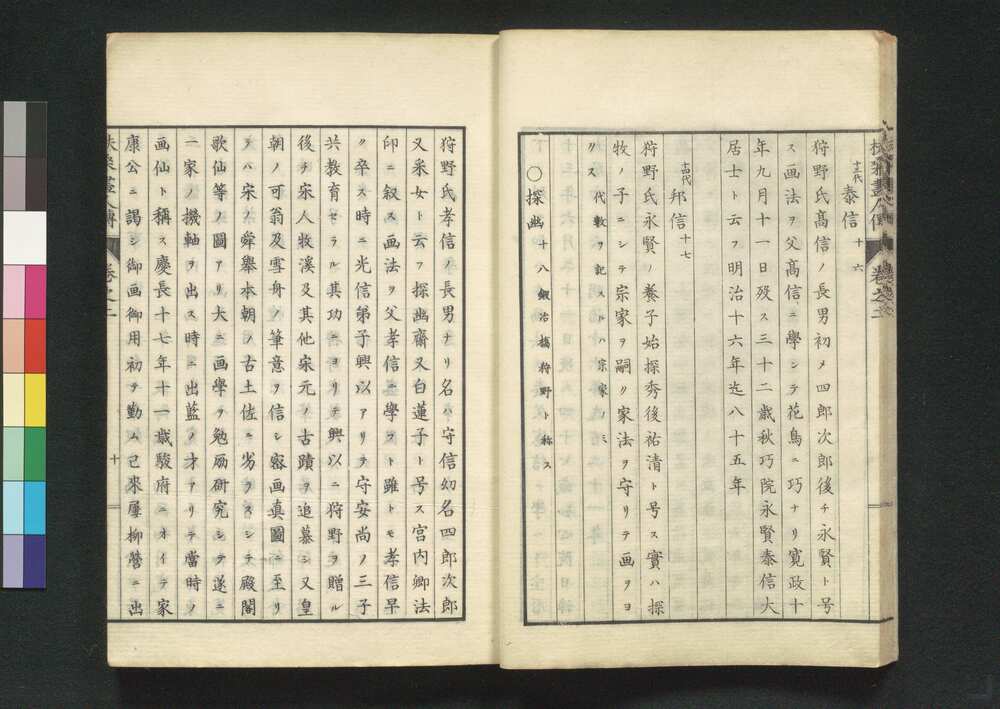 十三代 泰信 十六
狩野氏高信ノ長男初メ四郎次郎後チ永賢ト号
ス画法ヲ父高信ニ學シテ花鳥ニ巧ナリ寛政十
年九月十一日歿ス三十二歳秋巧院永賢泰信大
居士ト云フ明治十六年迄八十五年
十四代 邦信 十七
狩野氏永賢ノ養子始探秀後祐清ト号ス實ハ探
牧ノ子ニシテ宗家ヲ嗣ク家法ヲ守リテ画ヲヨ
クス 代数ヲ記スルハ宗家ノミ
〇探幽 十八 鍛冶橋狩野ト称ス
狩野氏孝信ノ長男ナリ名ハ守信幼名四郎次郎
又采女ト云フ探幽齋又白蓮子ト号ス宮内卿法
印ニ叙ス画法ヲ父孝信ニ學フト雖トモ孝信早
ク卒ス時ニ光信弟子興以アリテ守安尚ノ三子
共教育セラル其功ニヨリテ興以ニ狩野ヲ贈ル
後チ宋人牧溪及其他宋元ノ古蹟ヲ追慕シ又皇
朝ノ可翁及雪舟ノ筆意ヲ信シ密画真圖ニ至リ
テハ宋ノ舜舉本朝ノ古土佐ニ劣ラスシテ殿閣
歌仙等ノ圖アリ大ニ画學ヲ勉励研究シテ遂ニ
一家ノ機軸ヲ出ス時ニ出藍ノ才アリテ當時ノ
画仙ト稱ス慶長十七年十一歳駿府ニオイテ家
康公ニ謁シ御画御用初テ勤ム己來屢柳營ニ出
扶桑畫人傳 卷之二 十